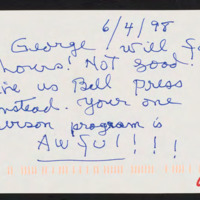 6/4/98
George will fo
hours! Not Good.
ive us Bell Press
nstead. Your one
erson program is
Awful!!!!